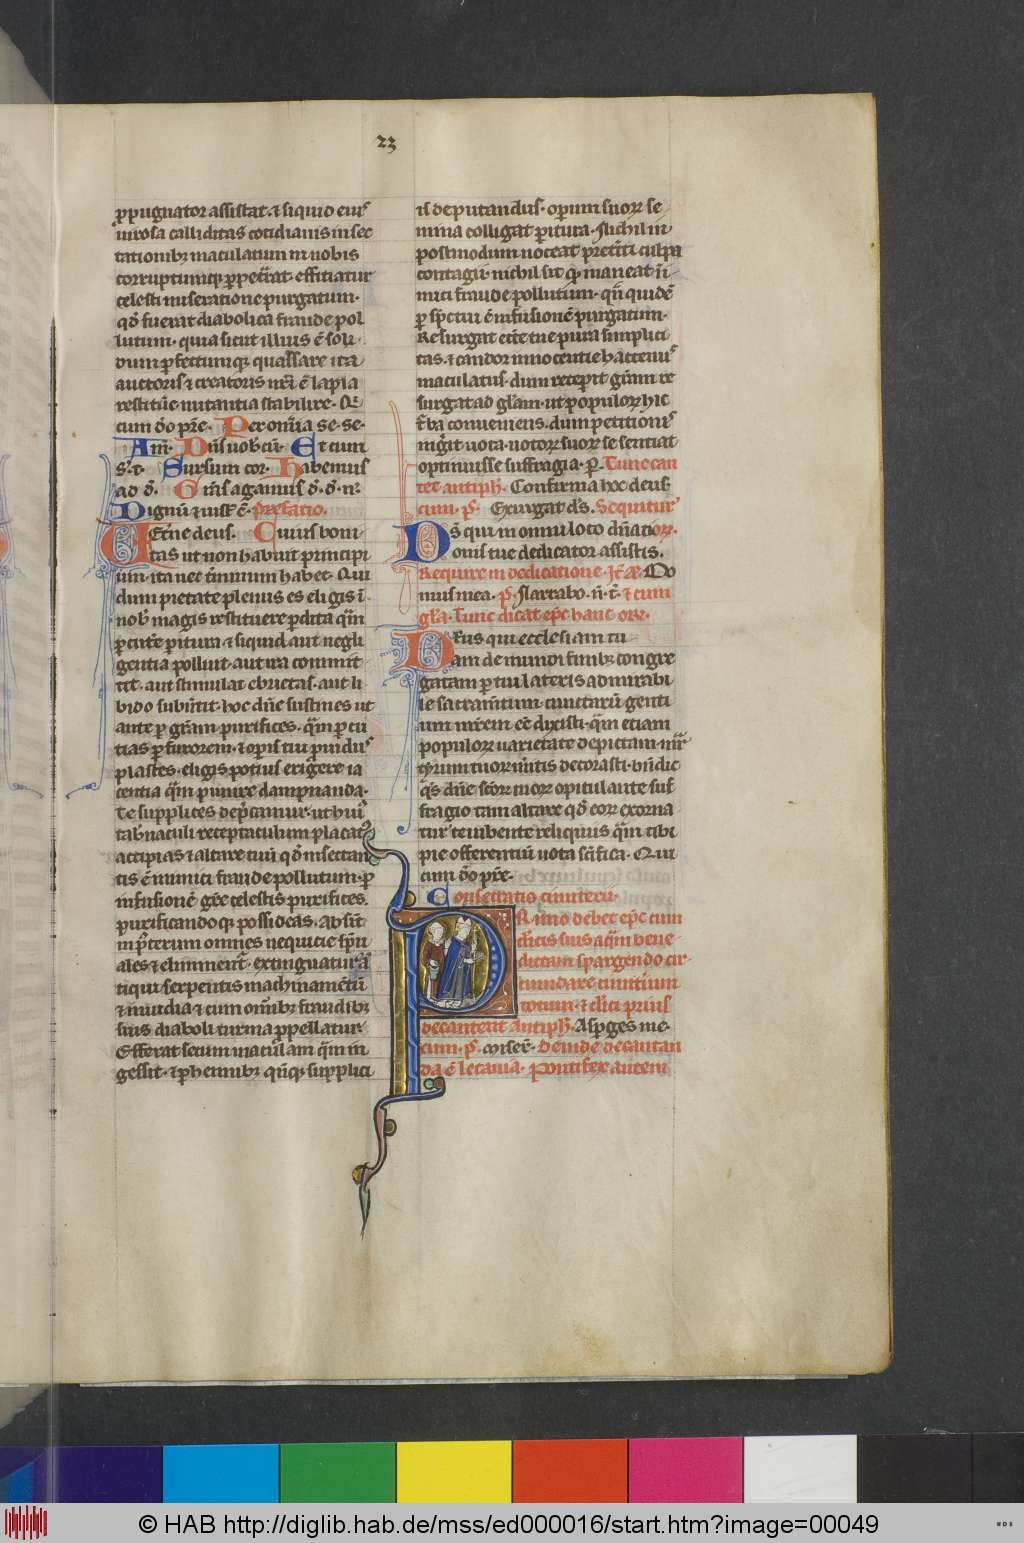 23
ꝓpugnator assistat. ⁊ siquid eius
uirosa calliditas cotidianis insec
tationibꝫ maculatum in nobis
corruptumqꝫ ꝑpet̃rat. efficiatur
celesti miseratione purgatum.
qđ fuerat diabolica fraude pol
lutum. quia sicut illius ē soli
dum ꝑfectumqꝫ quassare ita
auctoris ⁊ creatoris nr̄i ē lapsa
restitue̾ nutantia stabilire. Q̇
cum đo pr̄e. Per om̄ia se. se.
Am̄. Dn̄s uobcū. Et cum
s. t. Sursum cor. Habemus
ad đ. Gr̄as agamus đ. đ. n̄.
Dignū ⁊ iusť ē. Prefatio.
Et̃ne deus. Cuius boni
tas ut non habuit principi
um. ita nec t̃minum habet. Qui
dum pietate plenus es eligis ī
nob̾ magis restituere ꝑdita qm̄
ꝑcute̾ ꝑitura ⁊ siquid aut negli
gentia polluit. aut ira commit
tit. aut stimulat ebrietas. aut li
bido subu̾tit. hoc dn̄e sustines ut
ante ꝑ gr̄am purifices. qm̄ ꝑ cū
tias ꝑ furorem. ⁊ oꝑis tui ꝓuidus
plastes. eligis potius erigere ia
centia qm̄ punire dampnanda.
Te supplices dep̃camur. ut huiꝰ
tab̾naculi receptaculum placatꝰ
accipias ⁊ altare tuū qđ insectan
tis ē inimici fraude pollutum. ꝑ
infusionē gr̄e celestis purifices.
purificandoqꝫ possideas. Absīt
inpost̾um omnes nequicie spū
ales ⁊ eliminent̾. extinguatur ā
tiqui serpentis machinamentū
⁊ inuidia ⁊ cum om̄ibꝫ fraudibꝫ
suis diaboli turma ꝓpellatur.
Efferat secum maculam qm̄ in
gessit. ⁊ ꝑhennibꝫ qn̄qꝫ supplici
is deputandus. oꝑum suoꝝ se
mina colligat ꝑitura. Nichil in
postmodum noceat pret̾iti culpa
contagii. nichil sit qđ maneat īi
mici fraude pollutum. qn̄ quidē
ꝑ spc̄ tui ē infusionē purgatum.
Resurgat ecc̄e tue pura simplici
tas. ⁊ candor innocentie hactenus
maculatus. dum receꝑit gr̄am re
surgat ad gl̄am. ut populoꝝ hic
t̾ba conueniens. dum petitionis
ing̾it uota. uotoꝝ suoꝝ se sentiat
optinuisse suffragia. ꝑ. Tunc can
tet̾ antiph̄. Confirma hoc deus.
cum. ps̄. Exurgat ds̄. Sequitur
Ds̄ qui in omni loco dn̄atiōr.
onis tue dedicator assistis.
Require in dedicatione. It̄ a̾. Do
mus mea. ps̄. Laetabo. n̄. t̄. ⁊ cum
gl̄a. Tunc dicat epc̄ hanc orr̄.
Deus qui ecclesiam tu
am de mundi finibꝫ congre
gatam ꝑ tui lateris admirabi
le sacram̄tum. cunctarū genti
um mr̄em eē dixisti. qm̄ etiam
populoꝝ uarietate depictam. mr̄
tyrum tuoꝝ m̾itis decorasti. bn̄dic
qs̄ dn̄e sc̄oꝝ tuoꝝ opitulante suf
fragio tam altare qđ eoꝝ exorna
tur te iubente reliquiis qm̄ tibi
pie offerentiū uota sc̄ifica. Qui
cum đo pr̄e.
Consecratio cimiterii.
Primo debet epc̄ cum
cl̾icis suis aqm̄ bene
dictam spargendo cir
cuindare cimit̾ium
totum. ⁊ cl̾ici prius
decantent antiph̄. Aspges me.
cum. ps̄. Miser̄. Deinde decantan
da ē letania. Pontifex autem
© HAB http://diglib.hab.de/mss/ed000016/start.htm?image=00049